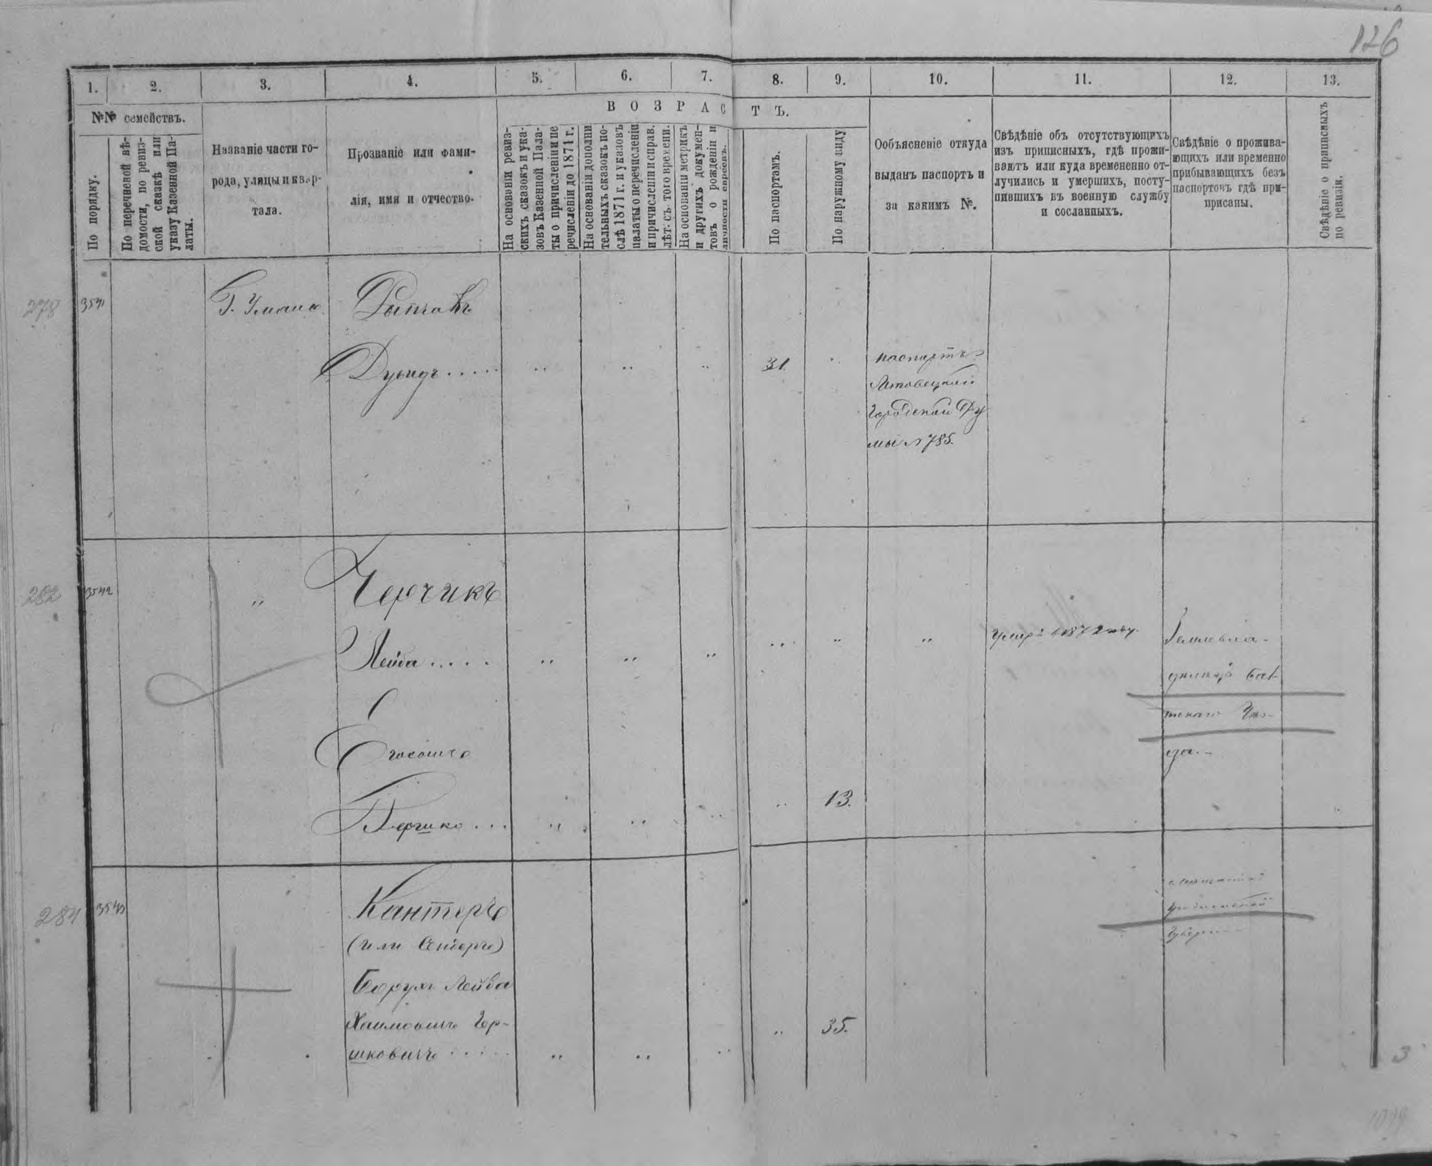 126
1.
2.
3.
4.
5.
6.
7.
8.
9.
10.
11.
12.
13.
№№ семействъ.
ВОЗРАСТЪ.
По порядку.
По перечневой вѣ-
домости, по ревиз-
ской сказкѣ или
указу Казенной Па-
латы.
Названіе части го-
рода, улицы и квар-
тала.
Прозваніе или фами-
лія, имя и отчество.
На основаніи ревиз-
скихъ сказокъ и ука-
зовъ Казенной Пала-
ты о причисленіи и пе
речисленіи до 1871 г.
На основаніи дополни
тельныхъ сказокъ по-
слѣ 1871 г. и указовъ
палаты о перечисленіи
и причисленіи и справ.
лѣт. съ того времени.
На основаніи метрикъ
и другихъ докумен-
товъ о рожденіи и
личности евреевъ.
По паспортамъ.
По наружному виду
Ообъясненіе откуда
выданъ паспортъ и
за какимъ №.
Свѣдѣніе объ отсутствующихъ
изъ приписныхъ, гдѣ прожи-
ваютъ или куда временено от-
лучились и умершихъ, посту-
пившихъ въ военную службу
и сосланныхъ.
Свѣдѣніе о прожива-
ющихъ или временно
прибывающихъ безъ
паспортовъ гдѣ при-
присаны.
Свѣдѣніе о приписныхъ
по ревизіи.
278
3541
Г. Умань
Дувидъ
31
паспортъ
Городской Ду
мы № 785.
282
3542
Черчикъ
Лейба
умеръ въ 1872 году
Бершко
13.
284
3543
Кантеръ
(или
Борухъ Лейба
Хаимовичъ Гер-
шковичъ
35.
губерніи
3